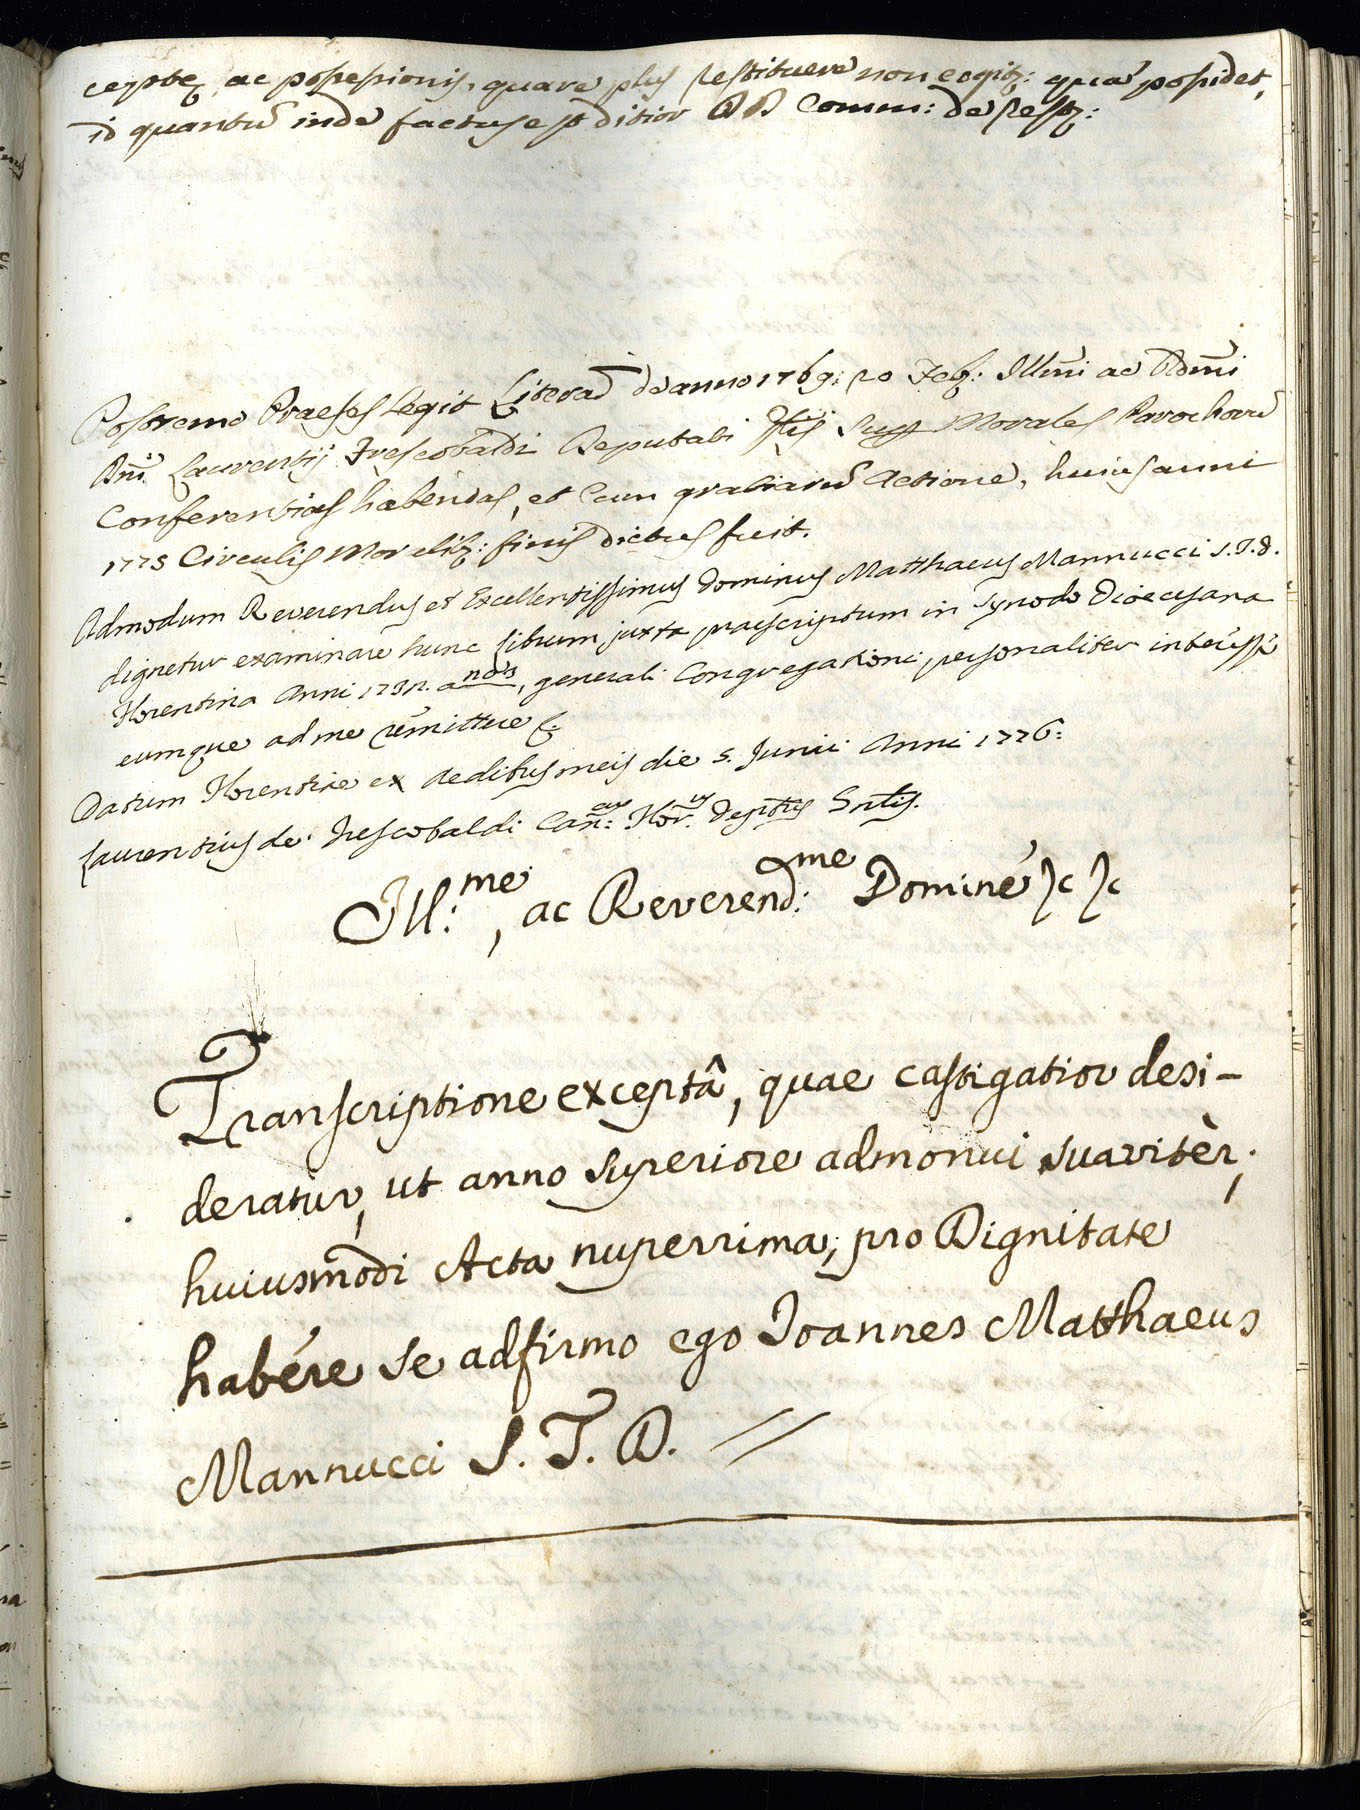 ceptę ac possessionis, quare plus restituere non cogitȝ: quā possidet,
id quantū inde factus est ditior DD Comm: de restȝ:
Postremo Praeses legit Literas de anno 1769: 20 Feb: Illm̄i ac Rdm̄i
Dn̄i Laurentij Frescobaldi Deputati Morales Parochorū
Conferentias habendas, et cum gratiarū actione, huius anni
1775 Circulis Moralibȝ: finis dictus fuit.
Admodum Reverendus et Excellentissimus Dominus Matthaeus Mannucci S. T. D.
dignetur examinare hunc librum juxta praescriptum in Synodo Dioecesana
Florentina Anni 1732. a nobis, generali Congregationi personaliter interesse
eumque ad me remittere &.
Datum Florentiae ex Aedibus meis die 5. Junii Anni 1776:
Laurentius de' Frescobaldi Can:cus Flor.us Deptus Sntis.
Ill:me, ac Reverend:me Domine &c &c
Transcriptione exceptâ, quae castigatior desi-
deratur, ut anno superiore admonui suavitèr;
huiusmodi Acta nuperrima, pro Dignitate
habére se adfirmo ego Joannes Matthaeus
Mannucci S. T. D. //